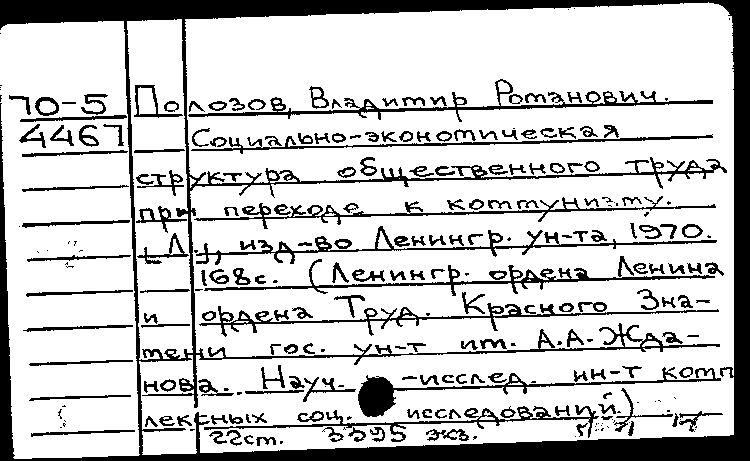 70-5 Полозов, Владимир Романович.
4467 Социально-экономическая
структура общественного труда
при переходе к коммунизму.
[Л.], изд-во Ленингр. ун-та, 1970.
168с. (Ленингр. ордена Ленина
и ордена Труд. Красного Зна-
мени гос. ун-т им. А.А. Жда-
нова. Науч.-исслед. ин-т комп
лексных соц. исследований)
22см. 3395 экз.